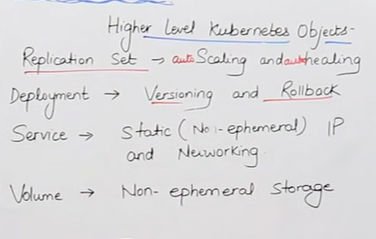 Higher Level Kubernetes Objects-
Replication Set → auto Scaling and auto healing
Deployment → Versioning and Rollback
Service → Static (Non-ephemeral) IP
and Networking
Volume → Non-ephemeral Storage